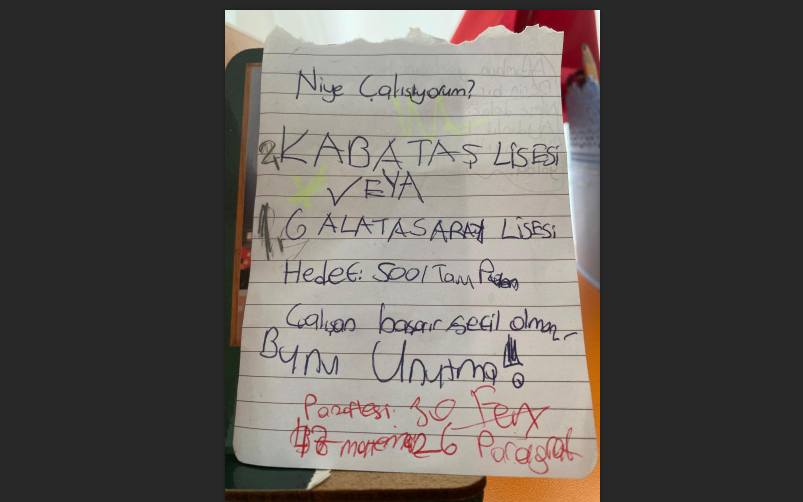 Niye Çalışıyorum?
2. KABATAŞ LİSESİ
VEYA
1. GALATASARAY LİSESİ
Hedef: 500/Tam Puan
Çalışan başarır sefil olmaz
Bunu Unutma!
Pazartesi: 30 Fen
26 Paragraf